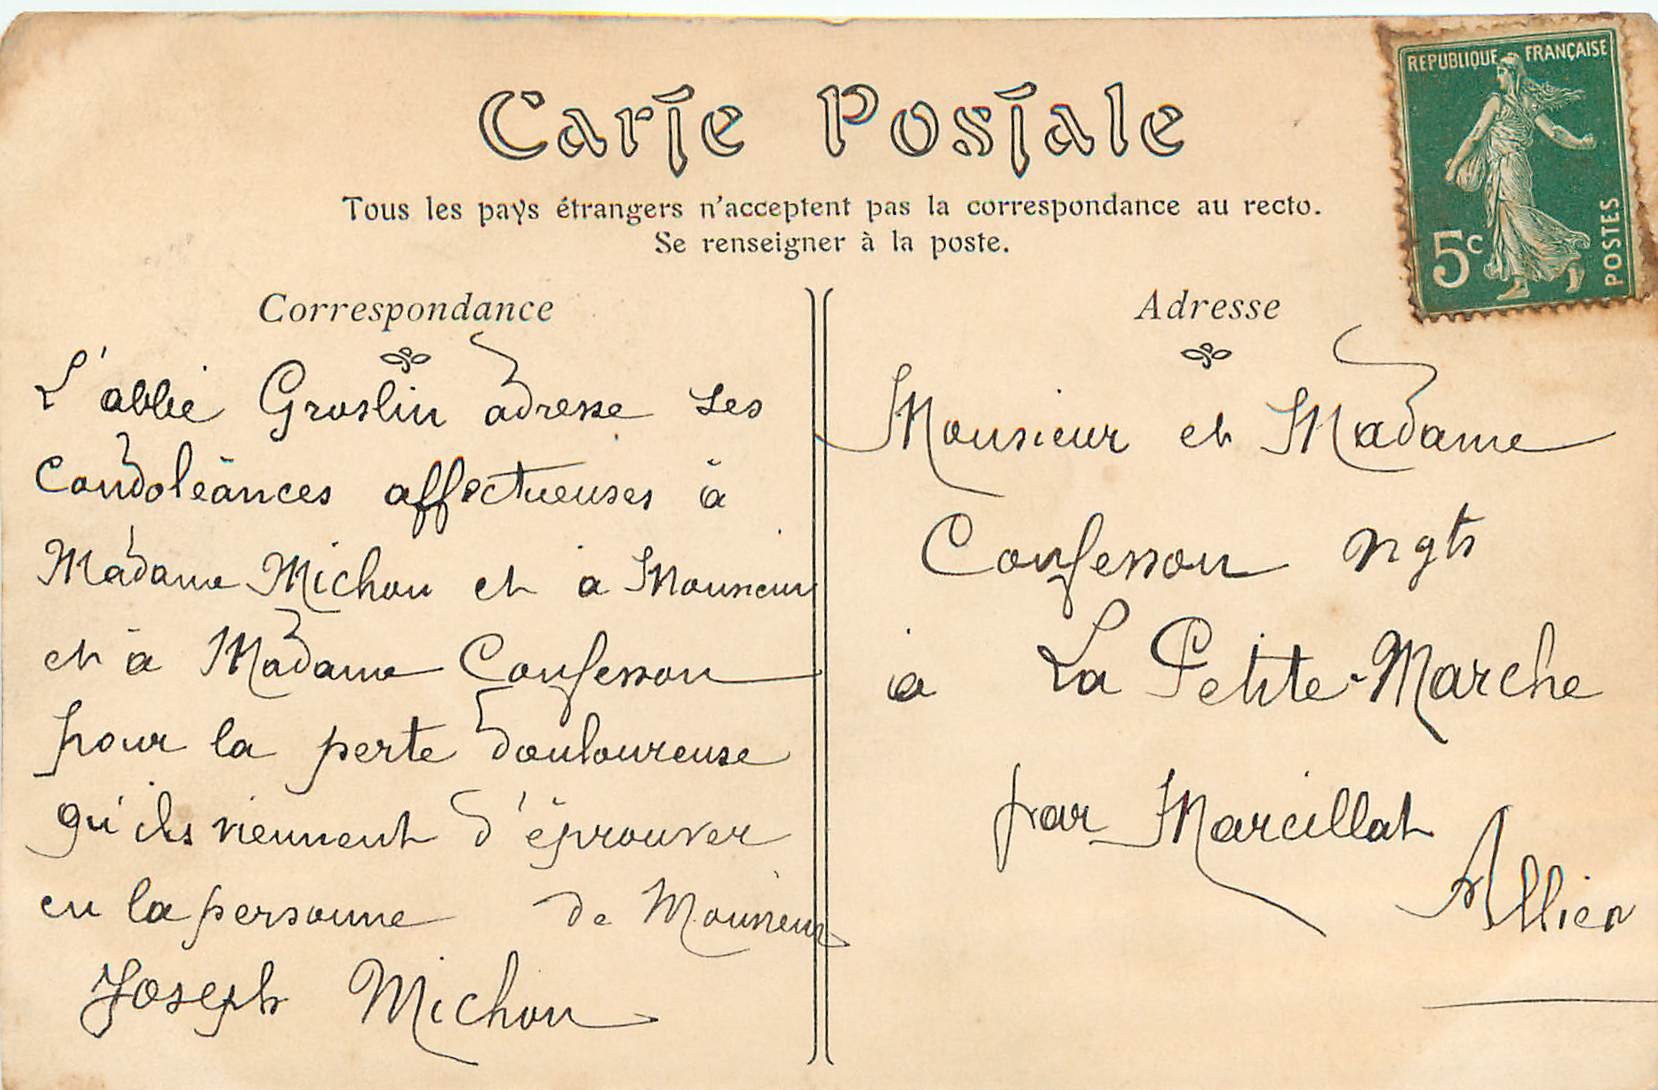 Carte Postale
Tous les pays étrangers n'acceptent pas la correspondance au recto.
Se renseigner à la poste.
REPUBLIQUE FRANÇAISE
5c
POSTES
Correspondance
L'abbé Groslin adresse ses
Condoléances affectueuses à
Madame Michon et à Monsieur
et à Madame Confesson
pour la perte douloureuse
qu'ils viennent d'éprouver
en la personne de Monsieur
Joseph Michon
Adresse
Monsieur et Madame
Confesson ngts
à La Petite-Marche
par Marcillat
Allier